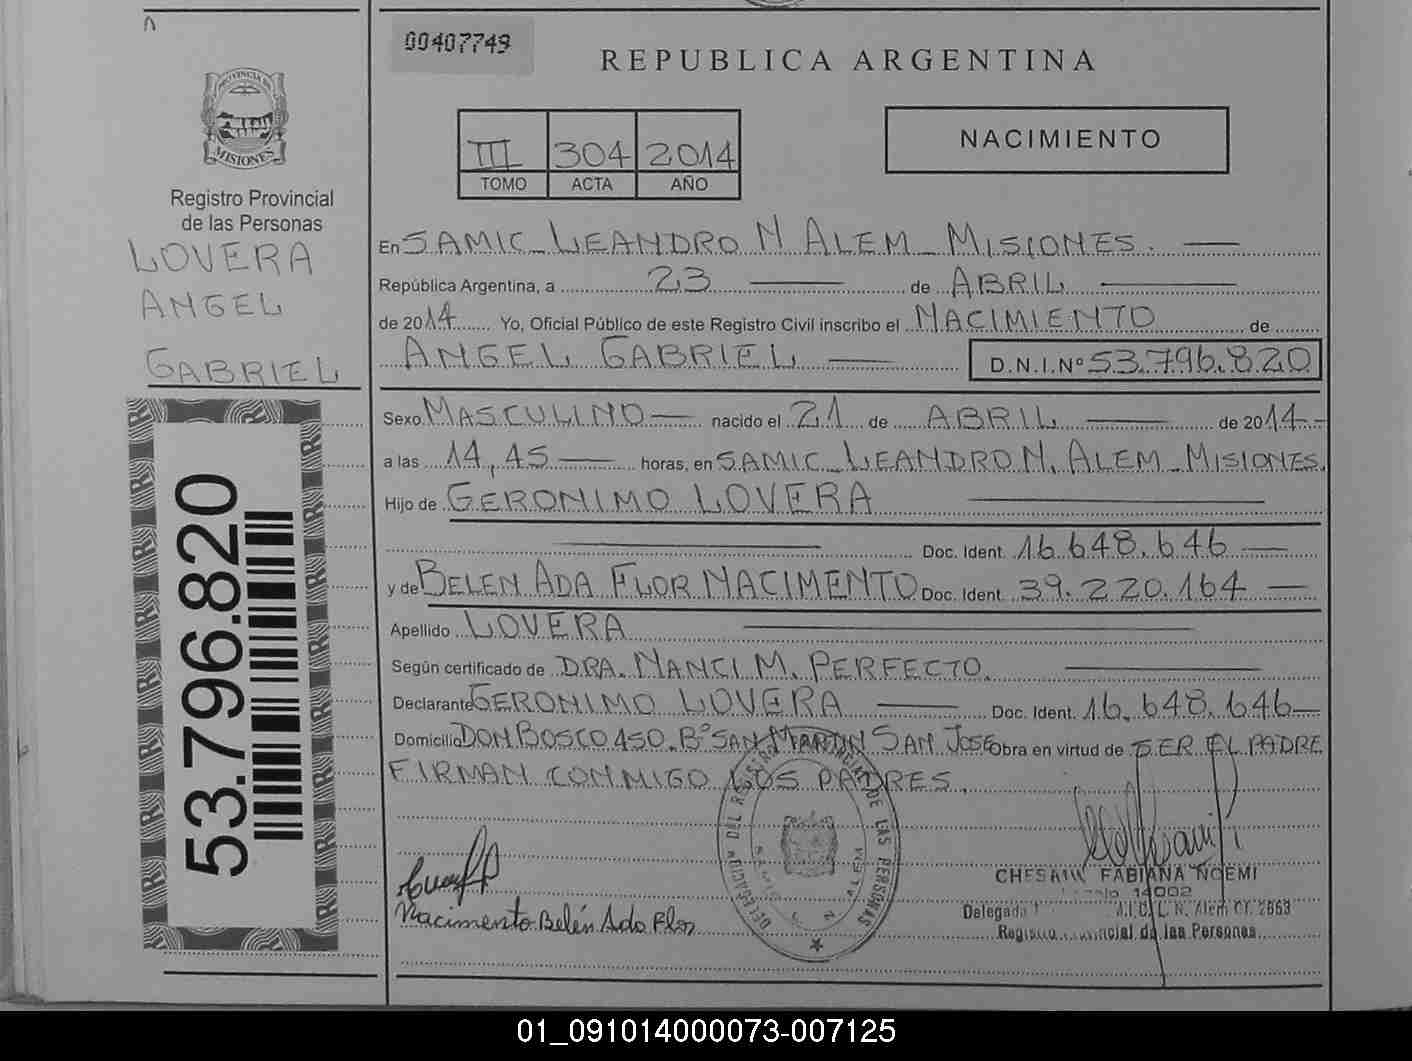 00407749
REPUBLICA ARGENTINA
PROVINCIA DE
MISIONES
Registro Provincial
de las Personas
LOVERA
ANGEL
GABRIEL
53.796.820
III 304 2014
TOMO ACTA AÑO
NACIMIENTO
En SAMIC - LEANDRO N ALEM - MISIONES.
República Argentina, a 23 de ABRIL
de 2014 Yo, Oficial Público de este Registro Civil inscribo el NACIMIENTO de
ANGEL GABRIEL D.N.I.Nº 53.796.820
Sexo MASCULINO nacido el 21 de ABRIL de 2014
a las 14,45 horas, en SAMIC - LEANDRO N. ALEM - MISIONES.
Hijo de GERONIMO LOVERA
Doc. Ident. 16.648.646
y de BELEN ADA FLOR NACIMENTO Doc. Ident. 39.220.164
Apellido LOVERA
Según certificado de DRA. NANCI M. PERFECTO.
Declarante GERONIMO LOVERA Doc. Ident. 16.648.646
Domicilio DON BOSCO 450. Bº SAN MARTIN SAN JOSE Obra en virtud de SER EL PADRE
FIRMAN CONMIGO LOS PADRES.
DELEGACION DEL REGISTRO PROVINCIAL DE LAS PERSONAS
SAMIC L. N. ALEM
Nacimento Belén Ada Flor
FABIANA NOEMI
14002
Delegada L. N. Alem Cr. 2663
Registro Provincial de las Personas
01_091014000073-007125